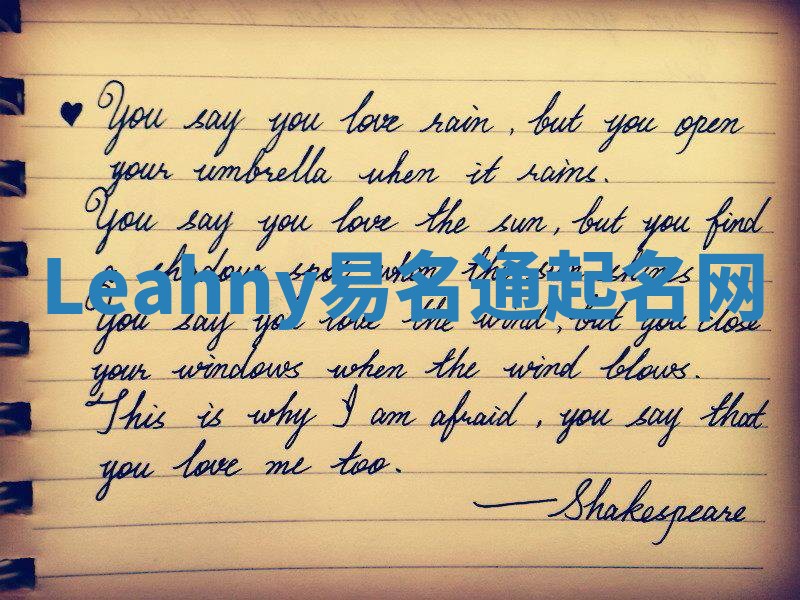 ♥ You say you love rain, but you open
your umbrella when it rains.
You say you love the sun, but you find
a shadow spot when the sun shines
Leahny易名通起名网
You say you love the wind, but you close
your windows when the wind blows.
This is why I am afraid, you say that
you love me too.
—Shakespeare